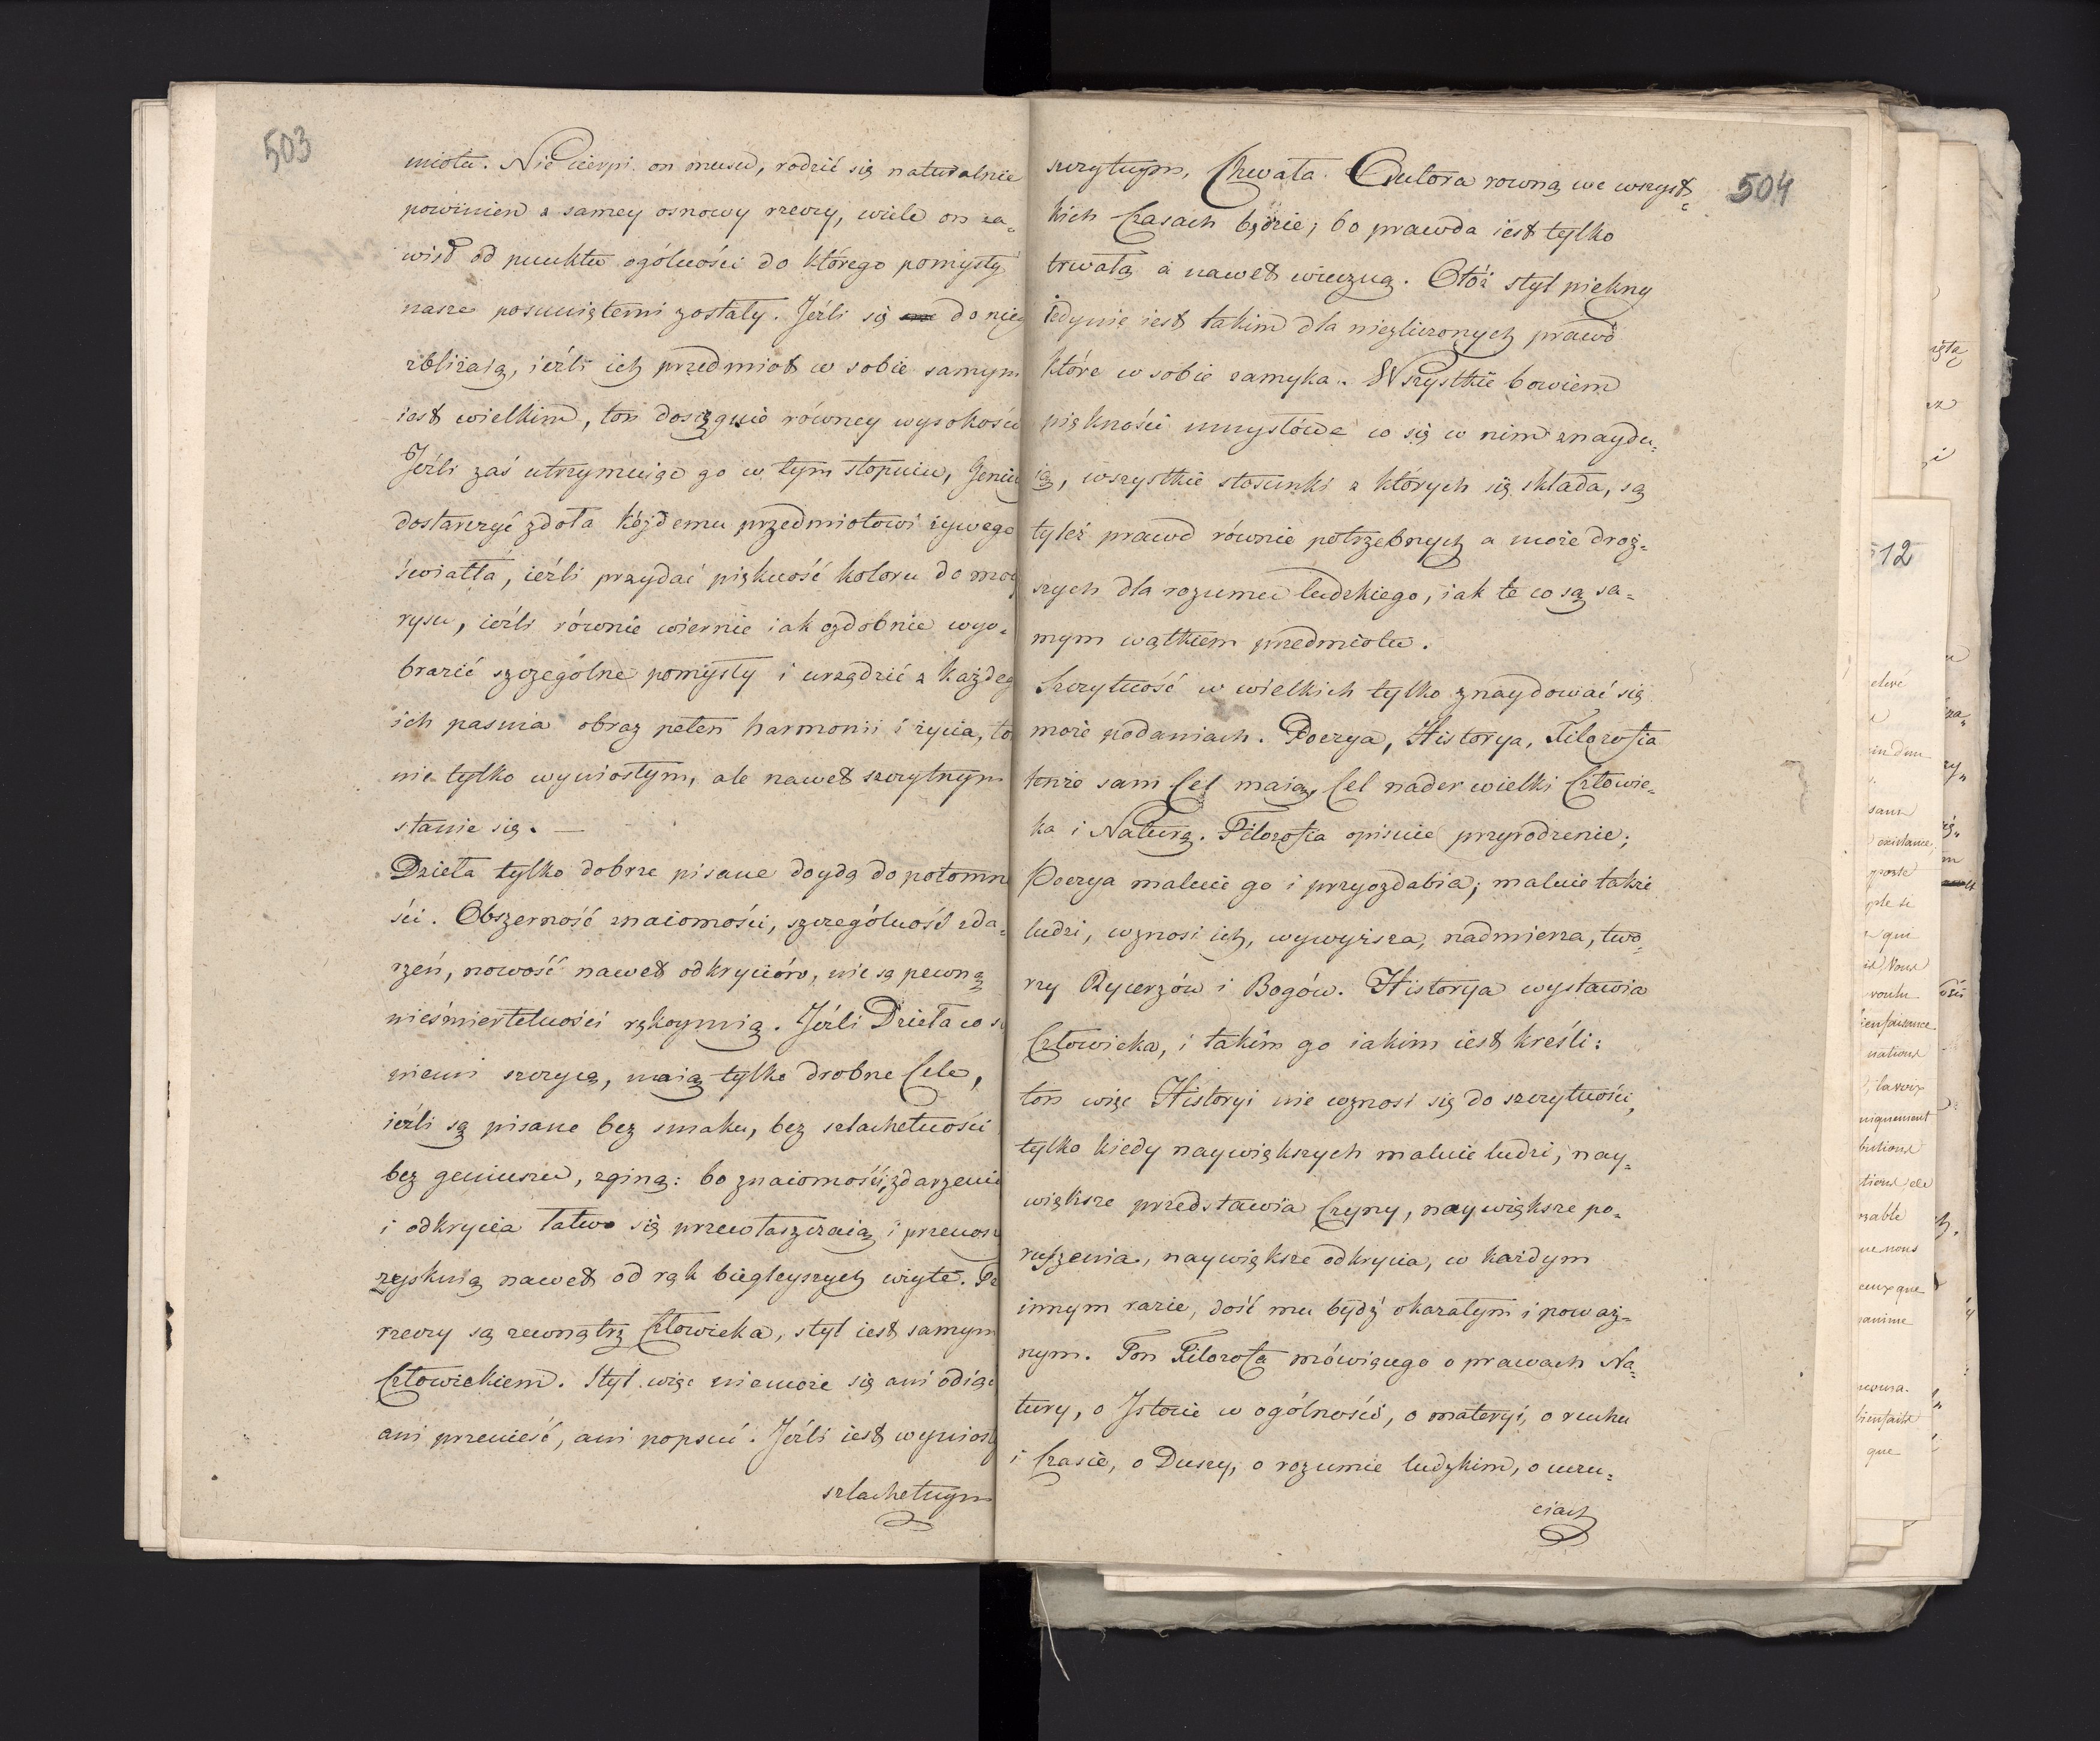 503
miotu. Nie cierpi on musu, rodzić się naturalnie
powinien z samey osnowy rzeczy, wiele on za=
wisł od punktu ogólności do którego pomysły
nasze posuniętemi zostały. Jeźli się do nie
zbliżaią, ieźli ich przedmiot w sobie samym
iest wielkim, ton dosięgnie równey wysokości
Jeźli zaś utrzymuiąc go w tym stopniu, Geniu
dostarczyć zdoła każdemu przedmiotowi żywego
światła, ieźli przydać piękność koloru do moc
rysu, ieźli równie wiernie iak ozdobnie wyo=
brazić szczególne pomysły i urządzić z każdeg
ich pasma obraz pełen harmonii i życia, to
nie tylko wyniosłym, ale nawet szczytnym
stanie się. —
Dzieła tylko dobrze pisane doydą do potomn
ści. Obszerność znaiomości, szczególność zda=
rzeń, nowość nawet odkryciów, nie są pewną
nieśmiertelności rękoymią. Jeźli Dzieła co s
niemi szczycą, maią tylko drobne Cele,
ieźli są pisane bez smaku, bez szlachetności
bez geniuszu, zginą: bo znaiomości, zdarzenia
i odkrycia łatwo się przewłaszczaią i przenosz
zyskuią nawet od rąk biegleyszych wzięte. Te
rzeczy są zewnątrz Człowieka, styl iest samym
Człowiekiem. Styl więc niemoże się ani odiąć
ani przenieść, ani popsuć. Jeźli iest wyniosł
szlachetnym
504
szczytnym, Chwała Autora równą we wszyst=
kich Czasach będzie; bo prawda iest tylko
trwałą a nawet wieczną. Otóż styl piękny
iedynie iest takim dla niezliczonych prawd
które w sobie zamyka. Wszystkie bowiem
piękności umysłowe co się w nim znaydu=
ią, wszystkie stosunki z których się składa, są
tyleż prawd równie potrzebnych a może droż=
szych dla rozumu ludzkiego, iak te co są sa=
mym wątkiem przedmiotu.
Szczytność w wielkich tylko znaydować się
może podaniach. Poezya, Historya, Filozofia
tenże sam Cel maią, Cel nader wielki Człowie=
ka i Naturę. Filozofia opisuie przyrodzenie;
Poezya maluie go i przyozdabia; maluie także
ludzi, wznosi ich, wywyższa, nadmierza, two=
rzy Rycerzów i Bogów. Historya wystawia
Człowieka, i takim go iakim iest kreśli:
ton więc Historyi nie wznosi się do szczytności,
tylko kiedy naywiększych maluie ludzi, nay=
większe przedstawia Czyny, naywiększe po=
ruszenia, naywiększe odkrycia, w każdym
innym razie, dość mu bydź okazałym i poważ=
nym. Ton Filozofa mówiącego o prawach Na=
tury, o Istocie w ogólności, o materyi, o ruchu
i Czasie, o Duszy, o rozumie ludzkim, o uczu=
ciach
512
sans
existance,
qui
Vous
voulu
bienfaisance
nations
la voix
uniquement
que nous
ceux que
bienfaits
que